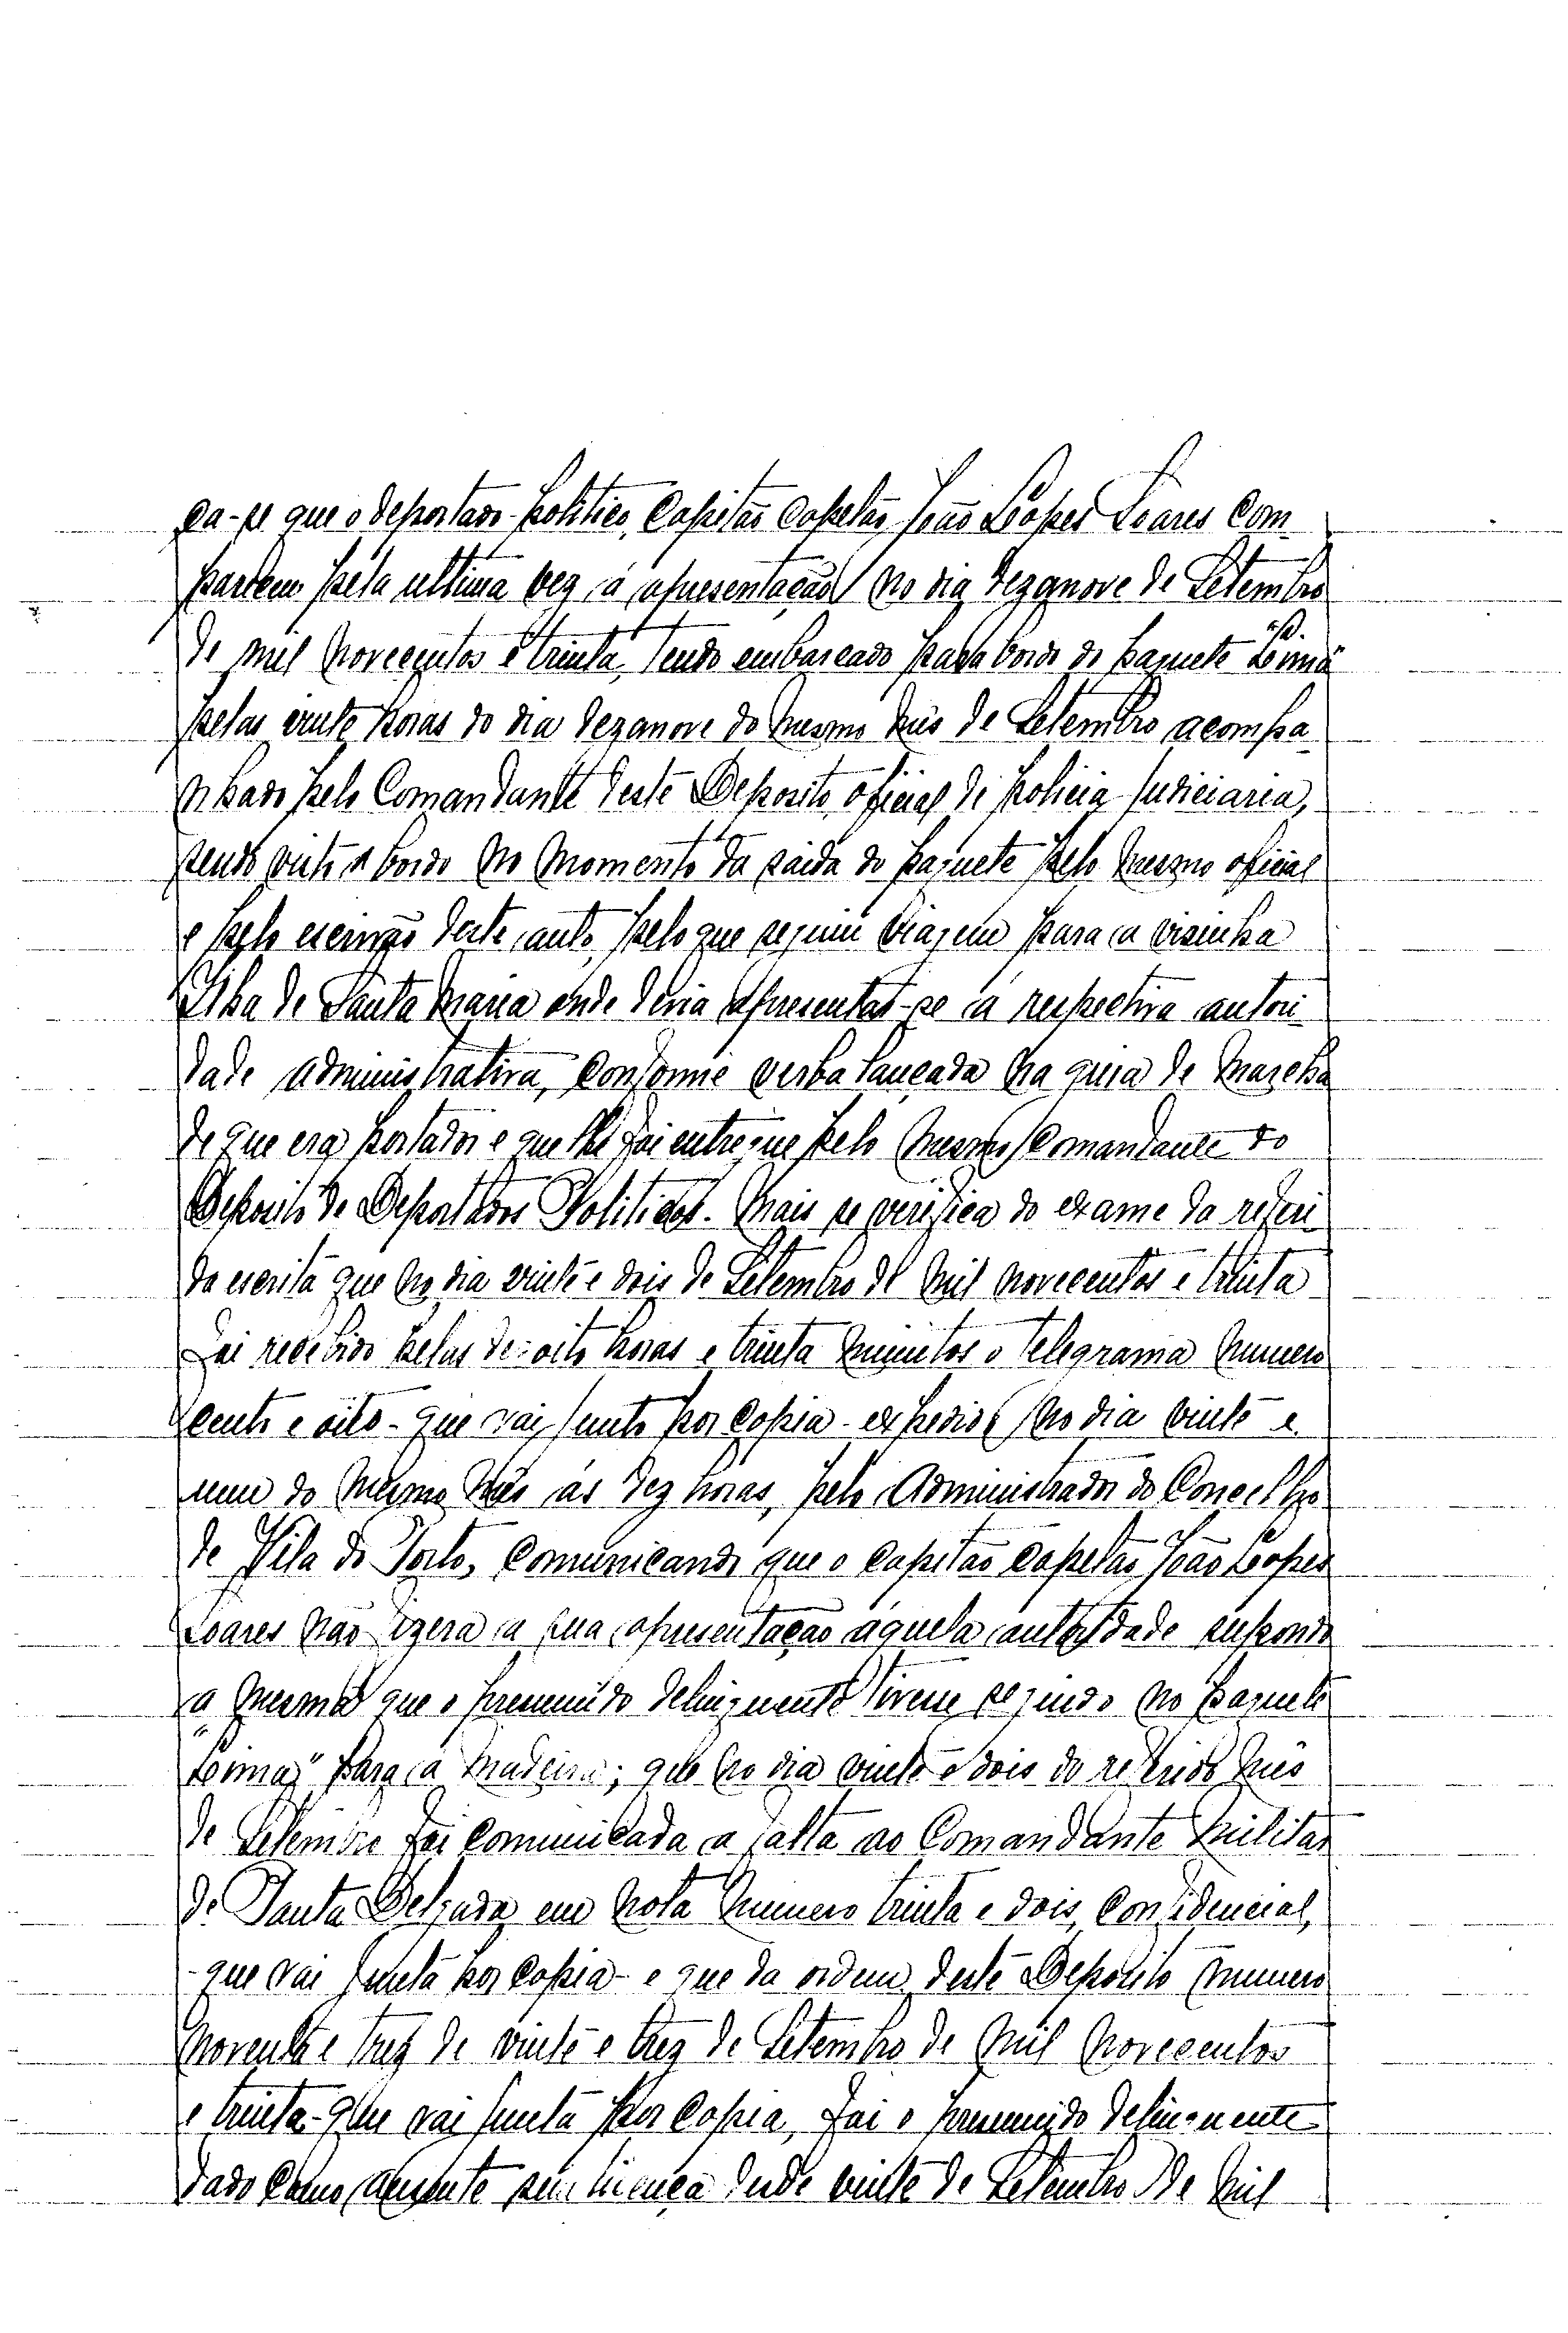 ca-se que o deportado politico, Capitão Capelão João Lopes Soares com
pareceu pela ultima vez á apresentação no dia dezanove de Setembro
de mil novecentos e trinta, tendo embarcado para bordo do paquete "Lima"
pelas vinte horas do dia dezanove do mesmo mês de Setembro acompa
nhado pelo Comandante deste Deposito, oficial de policia judiciaria,
sendo visto a bordo no momento da saída do paquete pelo mesmo oficial
e pelo escrivão deste auto, pelo que seguiu viagem para a visinha
Ilha de Santa Maria onde devia apresentar-se á respectiva autori
dade administrativa, conforme verba lançada na guia de marcha
de que era portador e que lhe foi entregue pelo mesmo Comandante do
Deposito de Deportados Politicos. Mais se verifica do exame da referi
da escrita que no dia vinte e dois de Setembro de mil novecentos e trinta
foi recebido pelas dezoito horas e trinta minutos o telegrama numero
cento e oito - que vai junto por copia - expedido no dia vinte e
um do mesmo mês ás dez horas, pelo Administrador do Concelho
de Vila do Porto, comunicando que o capitão capelão João Lopes
Soares não fizera a sua apresentação áquela autoridade supondo
a mesma que o presumido delinquente tivesse seguido no paquete
"Lima" para a Madeira; que no dia vinte e dois do referido mês
de Setembro foi comunicada a falta ao Comandante Militar
de Ponta Delgada em nota numero trinta e dois, confidencial,
- que vai junta por copia - e que da ordem deste Deposito numero
noventa e trez de vinte e trez de Setembro de mil novecentos
e trinta - que vai junta por copia, foi o presumido delinquente
dado como ausente sem licença desde vinte de Setembro de mil